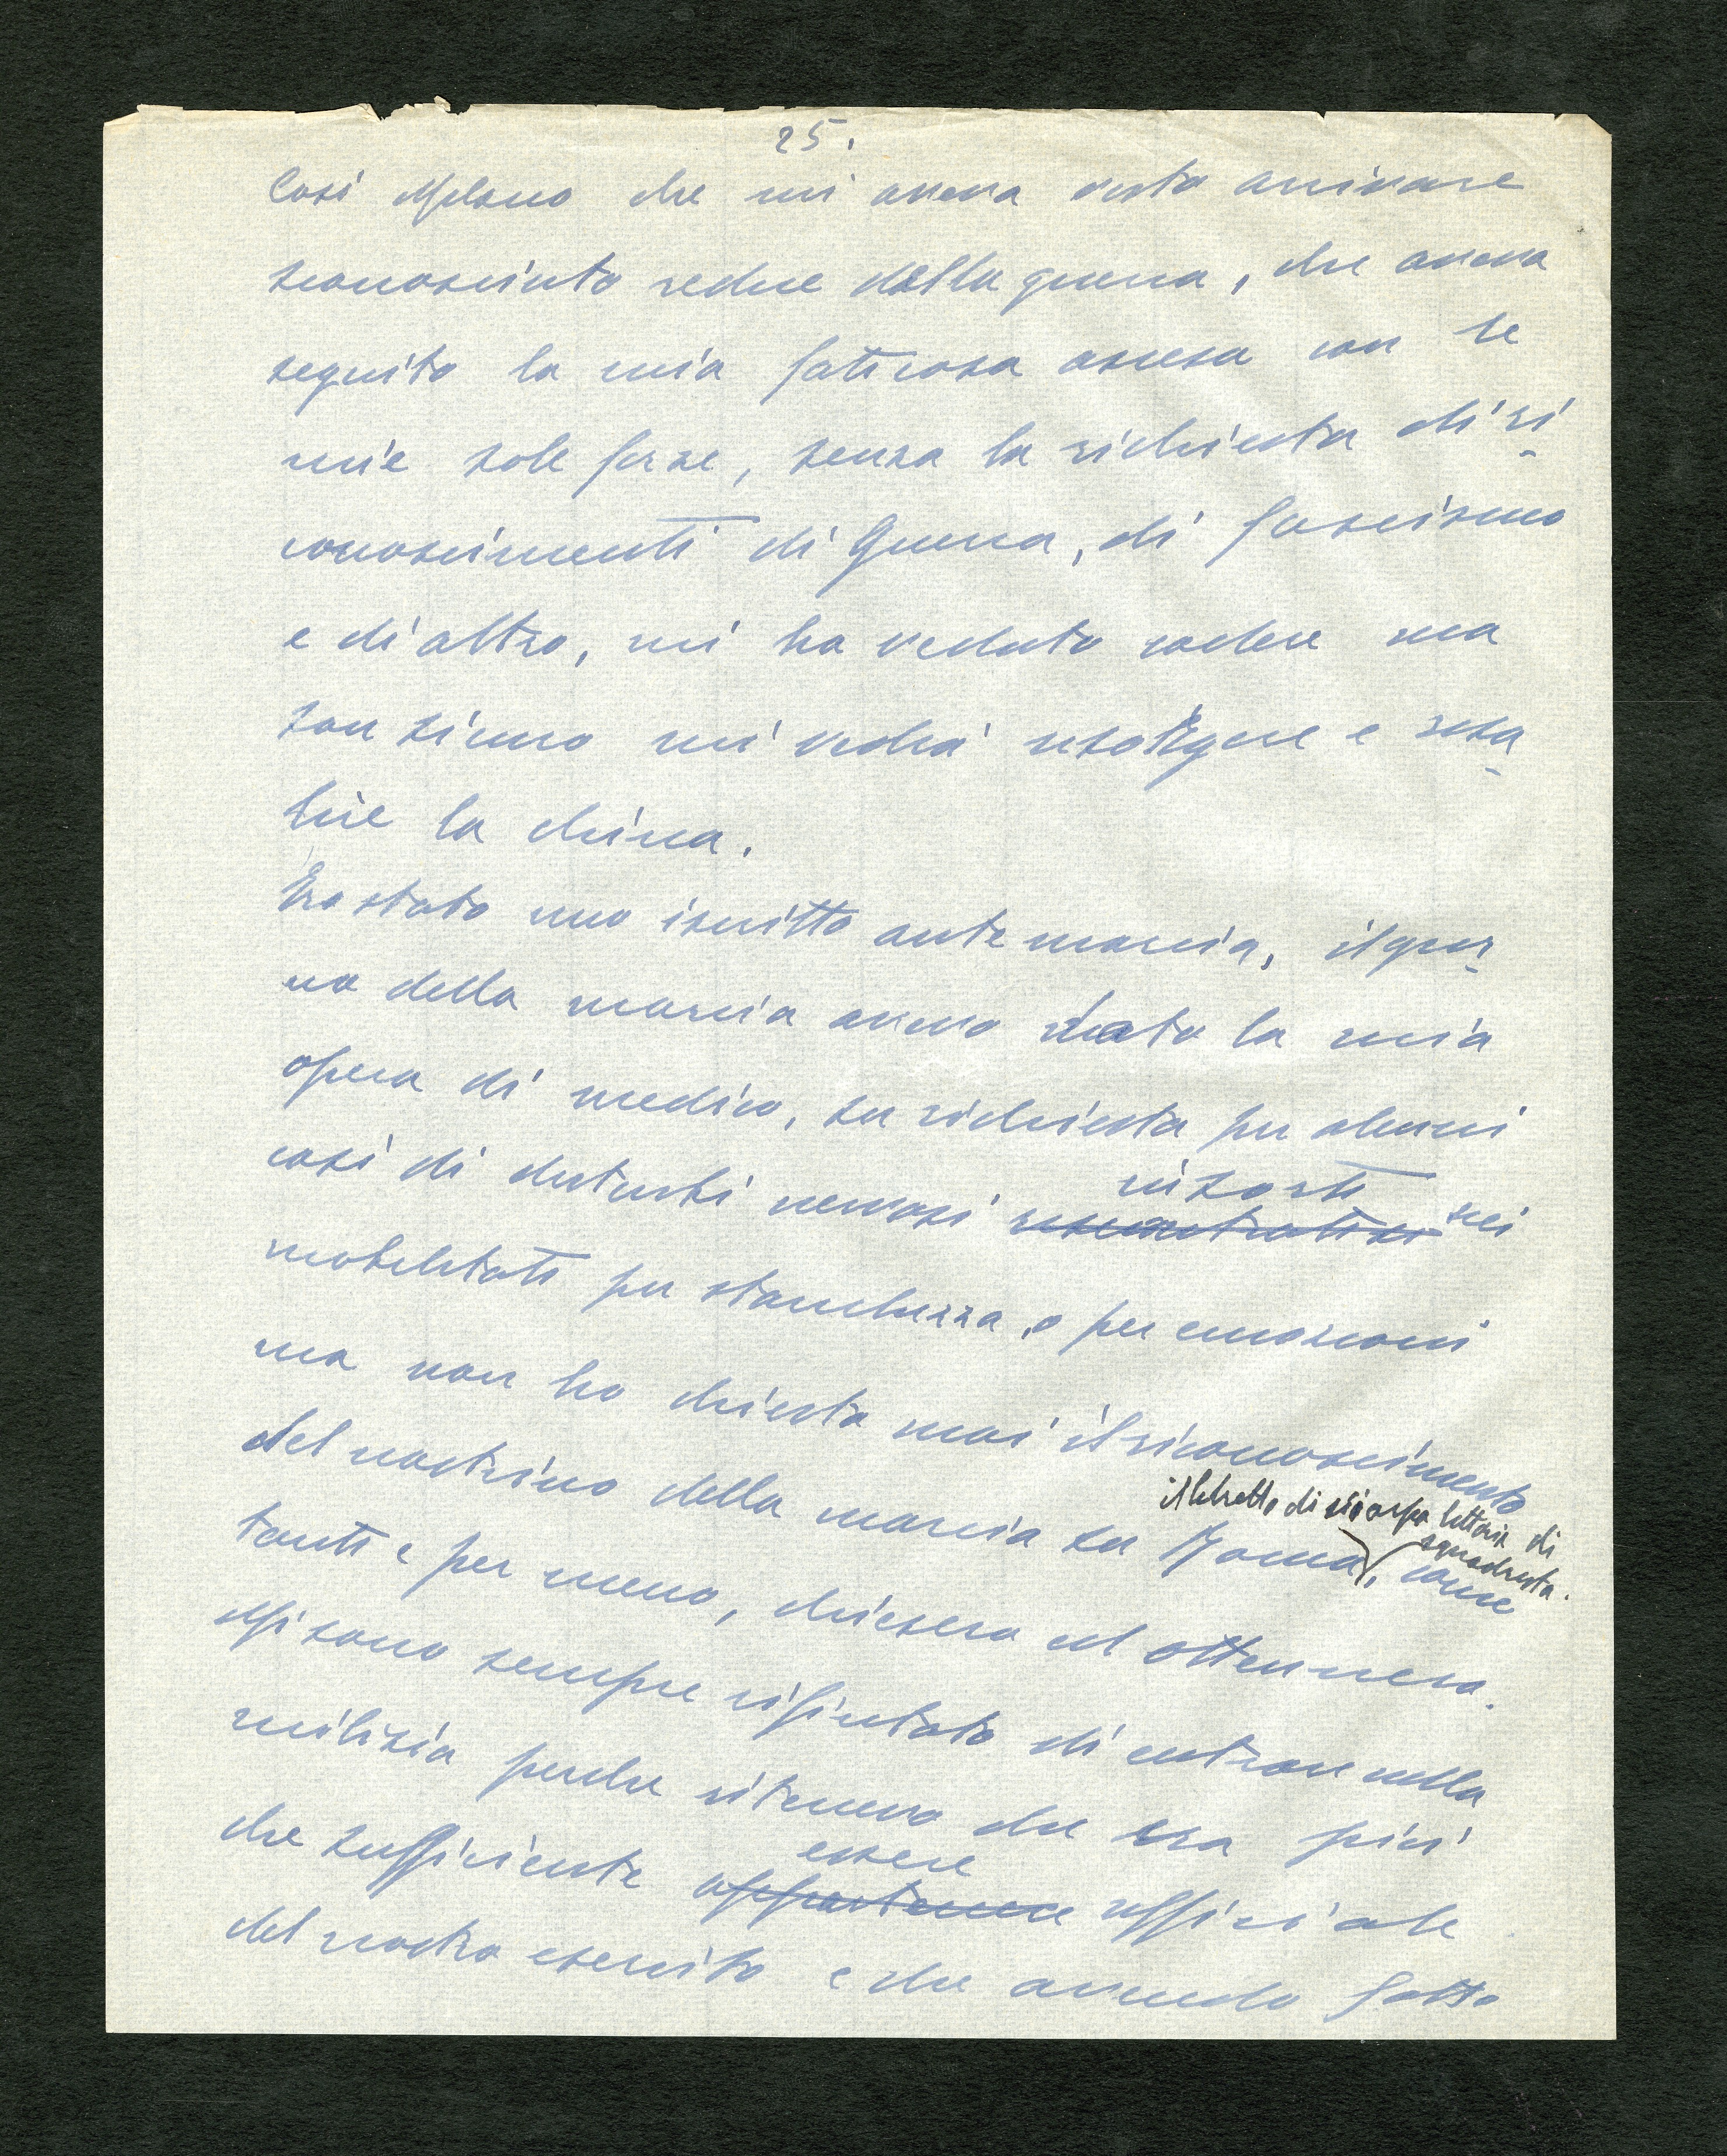 25.
Così Milano che mi aveva visto arrivare
sconosciuto reduce della guerra, che aveva
seguito la mia faticosa ascesa con le
mie sole forze, senza la richiesta di ri
conoscimenti di Guerra, di fascismo
e di altro, mi ha veduto cadere ma
son sicuro mi vedrà risorgere e risa
lire la china.
Ero stato uno iscritto ante marcia, il gior
no della marcia avevo dato la mia
opera di medico, su richiesta per alcuni
insorti
casi di disturbi nervosi riscontratisi nei
mobilitati per stanchezza, o per emozioni
ma non ho chiesto mai il riconoscimento
il libretto di sciarpa littoria di
squadrista.
del nastrino della marcia su Roma, come
tanti e per meno, chiesero ed ottennero.
Mi sono sempre rifiutato di entrare nella
milizia perche ritenevo che era più
essere
che sufficiente appartenere ufficiale
del nostro esercito e che avendo fatto